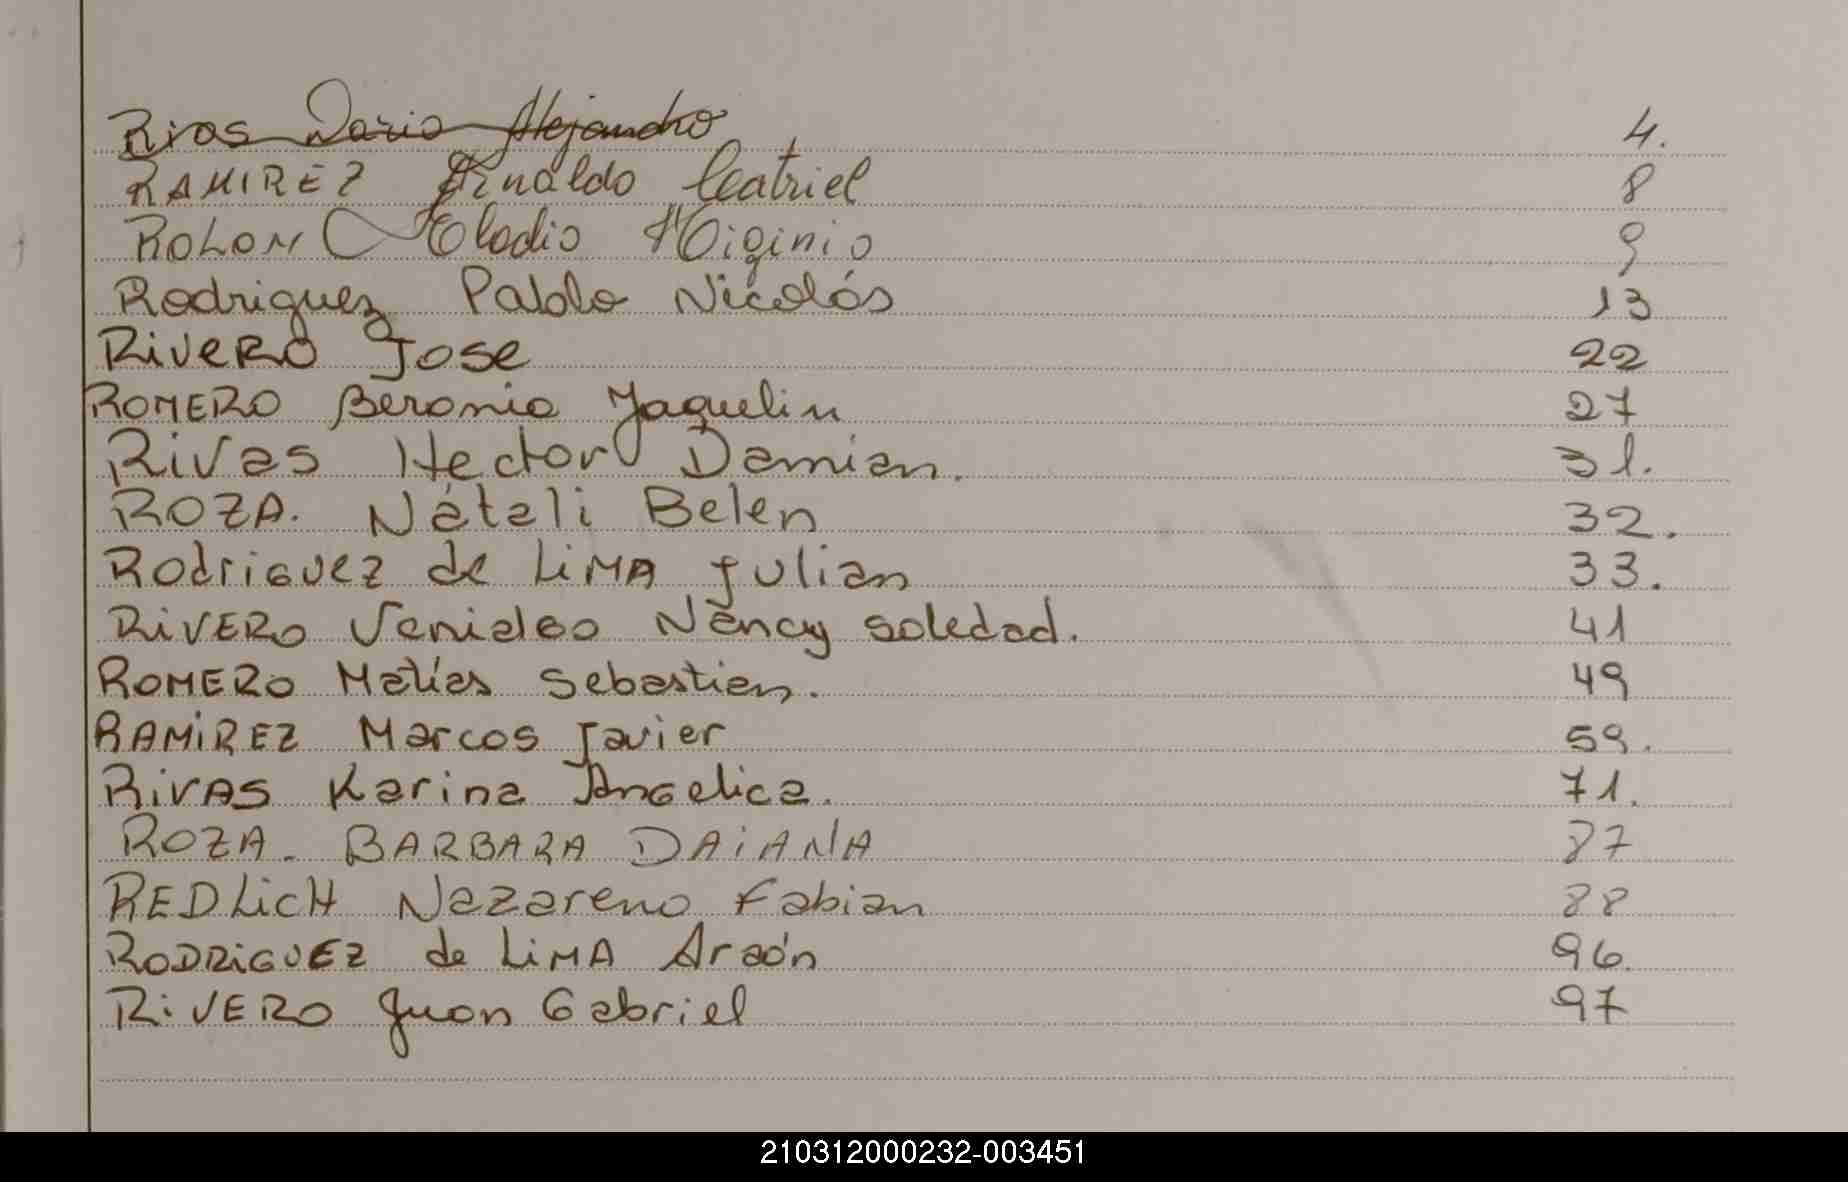 Rios Dario Alejandro 4.
RAMIREZ Arnaldo Ceatriel 8
ROLON Elodio Higinio 9
Rodriguez Pablo Nicolás 13
RiVERO Jose 22
ROMERO Beronia Jaquelin 27
Rivas Hector Damian. 31.
ROZA. Nátali Belen 32.
Rodriguez de LiMA Julian 33.
RiVERO Nancy soledad. 41
ROMERO Matías Sebastian. 49
RAMiREZ Marcos Javier 59.
RivAS Karina Angelica. 71.
ROZA. BARBARA DAiANA 87
REDLicH Nazareno Fabian 88
RODRiGUEZ de LiMA Araón 96.
RiVERO Juan Gabriel 97
210312000232-003451